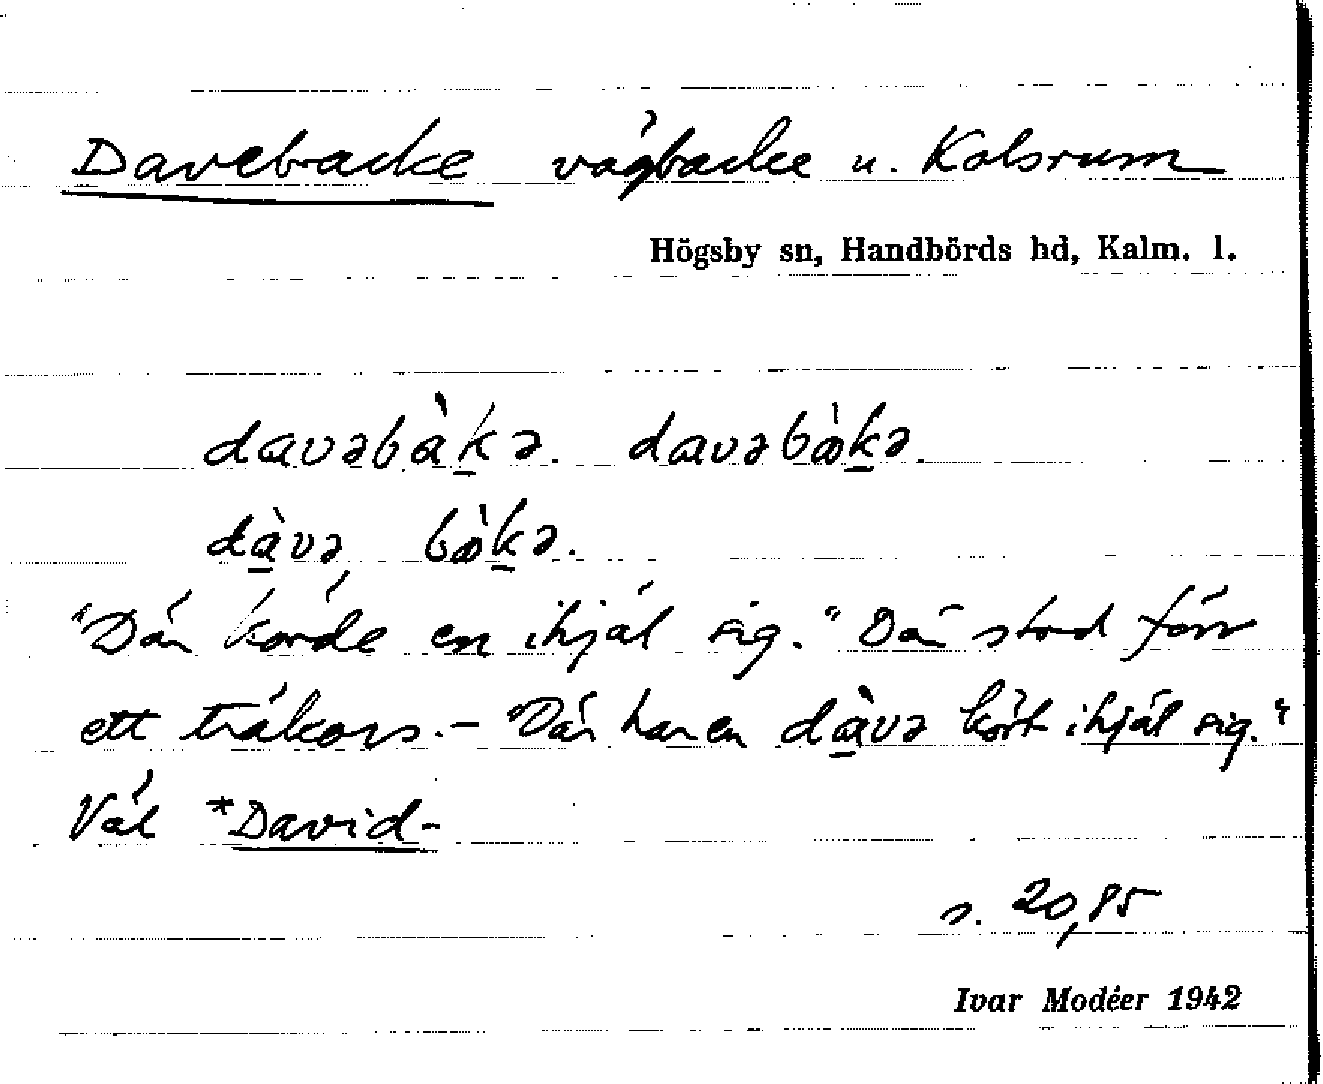 Davebacke vägbacke u. Kolsrum
Högsby sn, Handbörds hd, Kalm. l.
davəbàk̠ə. davəbòk̠ə.
dàvə bòk̠ə.
"Där körde en ihjäl sig." Där stod förr
ett träkors. – "Där har en dàvə kört ihjäl sig."
Väl *David-
s. 20, 85
Ivar Modéer 1942